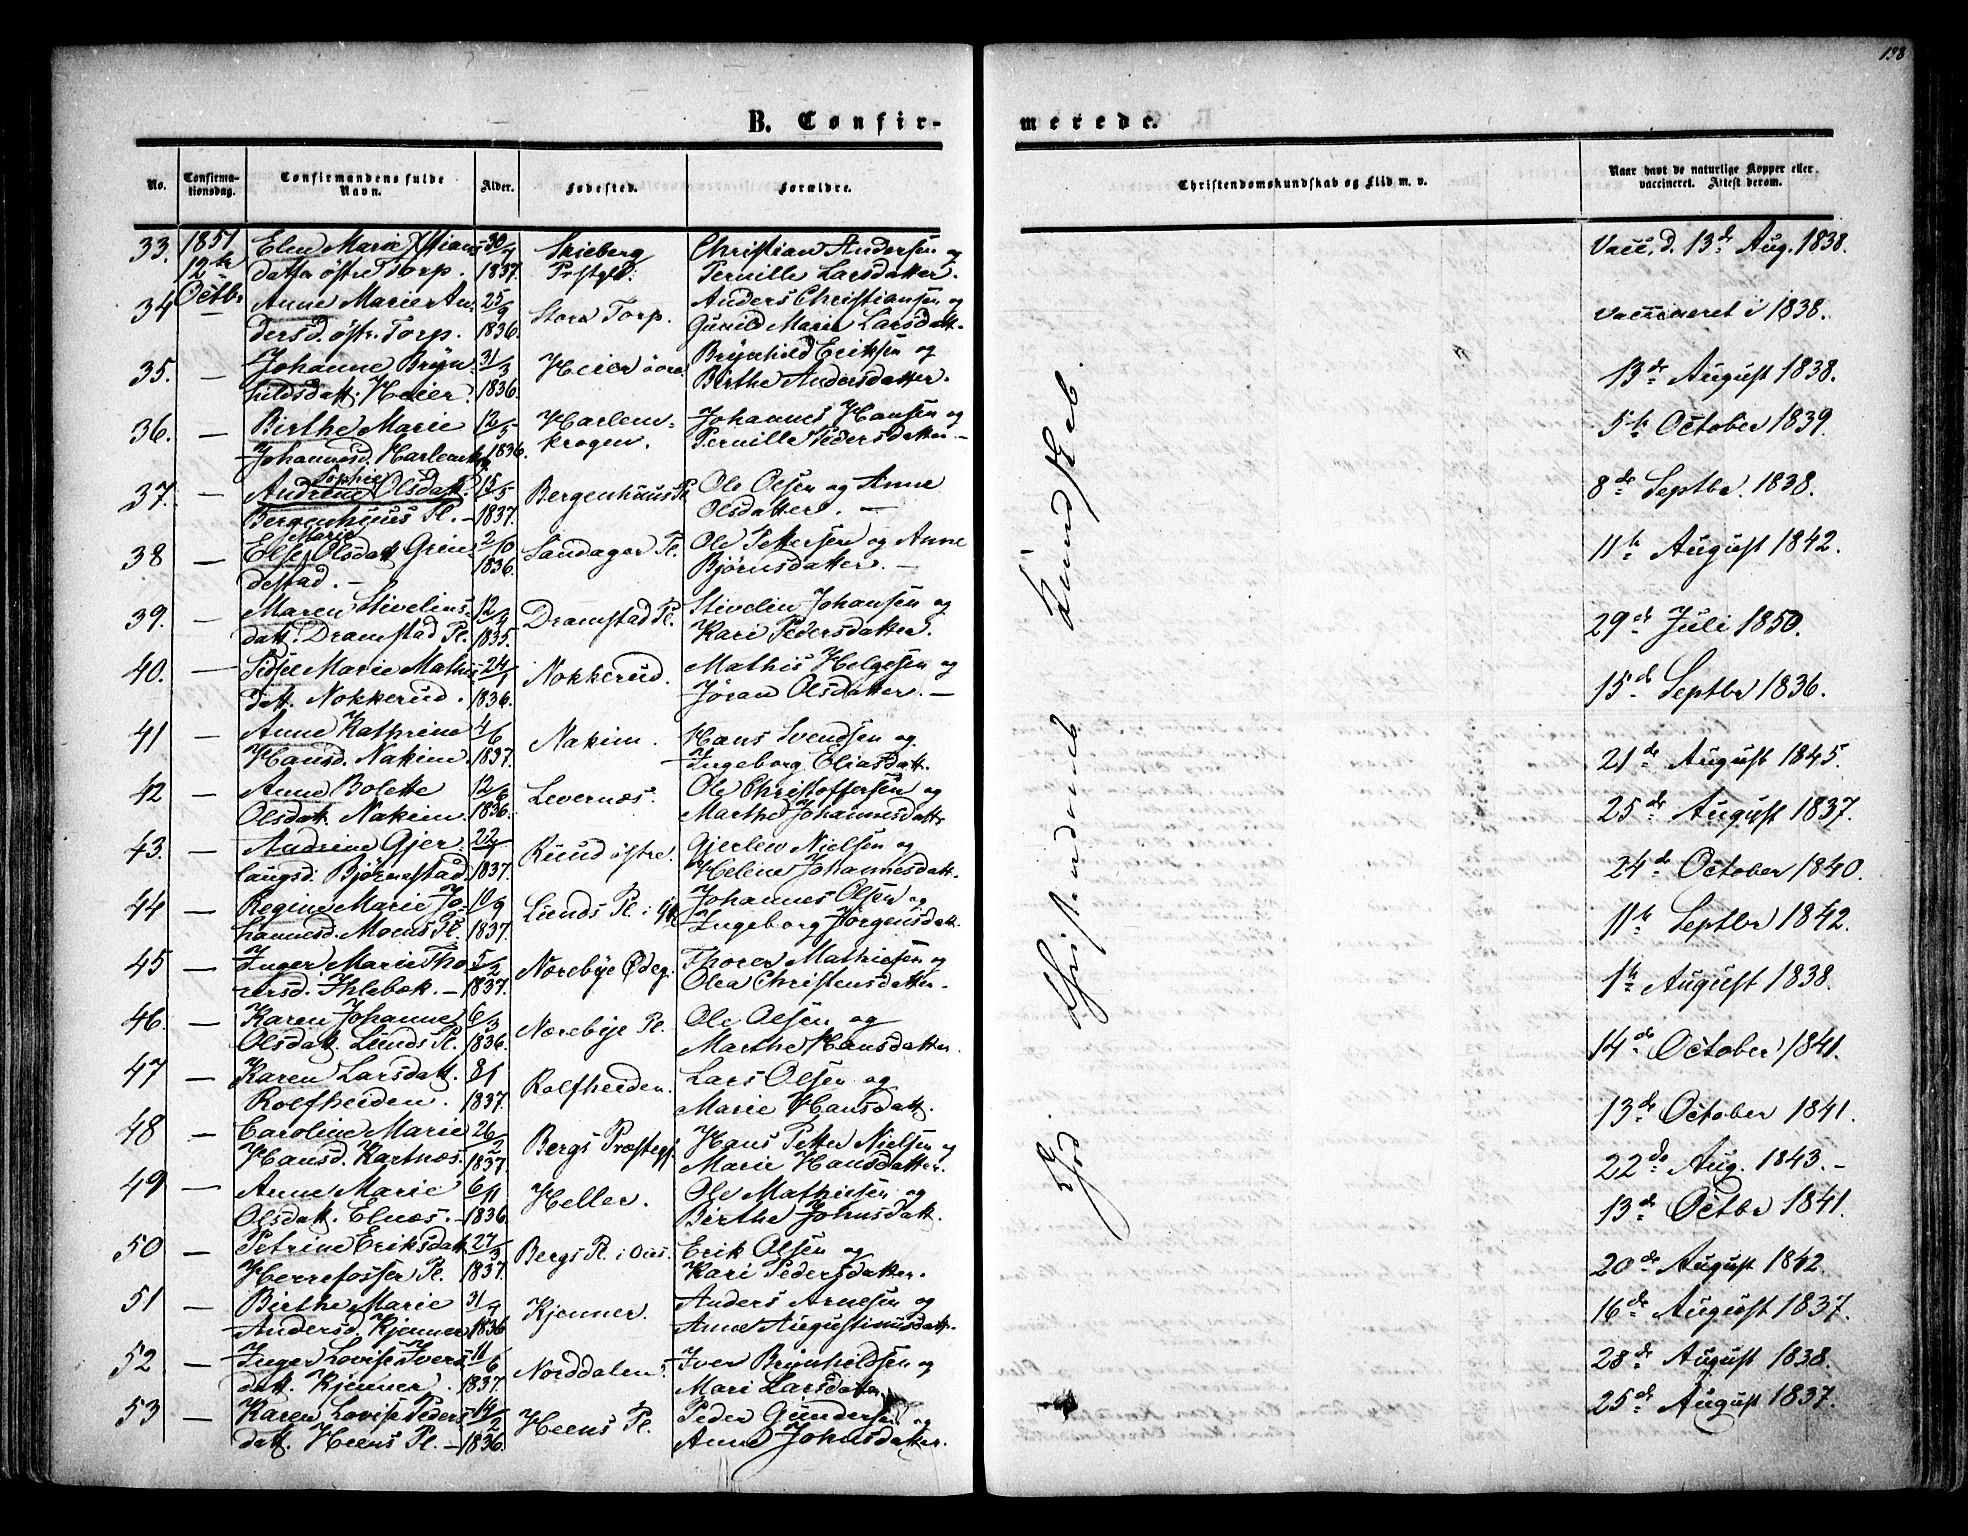 198
B. Confir-
merede.
No.
Confirma-
tionsdag.
Confirmandens fulde
Navn.
Alder.
Fødested.
Forældre.
Christendomskundskab og Flid m. v.
Naar havt de naturlige Kopper eller
vaccineret. Attest derom.
33. 1851 Elen Marie Xstians- 30/4 Skieberg Christian Andersen og Vacc. d. 13de Aug. 1838.
12te datter østre Torp. 1837. Prstgld: Pernille Larsdatter.
34 Octbr Anne Marie An- 25/9 Store Torp. Anders Christiansen og vaccineret i 1838.
dersd. østr. Torp. 1836. Gunild Marie Larsdatt.
35. — Johanne Bryn- 31/3 Heier øvre Brynhild Eriksen og 13de August 1838.
hildsdatt. Heier. 1836. Birthe Andersdatter.
36. — Birthe Marie 12/5 Harlem- Johannes Hansen og 5te October 1839.
Johannesd. Harlemkr. 1836. krogen. Pernille Pedersdatter. —
Sophie
37. — Andrine Olsdatt. 15/5 Bergenhuus Pl. Ole Olsen og Anne 8de Septbr. 1838.
Bergenhuus Pl. — 1837. Olsdatter. —
Marie
38 — Else Olsdatt Grin- 2/10 Sandager Pl. Ole Pettersen og Anne 11te August 1842.
destad. — 1836. Bjørnsdatter. —
39. — Maren Stivelins- 12/4 Dramstad Pl. Stivelin Johansen og 29de Juli 1850.
datt. Dramstad Pl. 1835. Kari Pedersdatter.
40. — Sidsel Marie Mathis- 24/1 Nokkerud. Mathis Helgesen og 15de Septbr 1836.
datt. Nokkerud. 1836. Jøran Olsdatter. —
41 — Anne Kathrine 4/6 Nakim. Hans Svendsen og 21de August 1845.
Hansd. Nakim. 1837. Ingeborg Eliasdatt.
42 — Anne Bolette 12/6 Levernæs. Ole Christoffersen og 25de August 1837.
Olsdatt. Nakim. 1836. Marthe Johannesdattr
43. — Andrine Gjer- Ruud østre. Gjerlew Nielsen og 24de October 1840.
laugsd. Bjørnestad. 1837. Helene Johannesdatt.
44 — Regine Marie Jo- 10/9 Lunds Pl. i Johannes Olsen og 11te Septbr 1842.
hannesd. Moens Pl. 1837. Ingeborg Jørgensdatt.
45 — Inger Marie Tho- 5/2 Nærebye Ødeg. Thorer Mathiesen og 1te August 1838.
rersd. Ihlebæk. — 1837. Olea Christensdatter.
46. — Karen Johanne 6/3 Nærebye Pl. Ole Olsen og 14de October 1841.
Olsdatt. Lunds Pl. 1836. Marthe Hansdatter.
47 — Karen Larsdatt. 8/1 Rolfheiden. Lars Olsen og 13de October 1841.
Rolfheiden. 1837. Marie Hansdatt.
48 — Caroline Marie 26/2 Bergs Præstegj. Hans Petter Nielsen og 22de Aug. 1843. —
Hansd. Kartnæs. 1837. Marie Hansdatter.
49 — Anne Marie 6/11 Heller. Ole Mathiesen og 13de Octbr 1841.
Olsdatt. Elnæs. — 1836. Birthe Johnsdatt.
50 — Petrine Eriksdatt. 27/3 Bergs Pl. i Erik Olsen og 20de August 1842.
Herrefosser Pl. 1837. Kari Pedersdatter.
51 — Birthe Marie Kjenner. Anders Arnesen og 16de August 1837.
Andersd. Kjenner 1836 Anne Augustinusdatt.
52 — Inger Lovise Ivers- 11/6 Norddalen. Iver Brynhildsen og 28de August 1838.
datt. Kjenner. 1837. Mari Larsdatter
53 — Karen Lovise Peders- 14/2 Heens Pl. Peder Gundersen og 25de August 1837.
datt. Heens Pl. — 1836. Anne Johnsdatter.
God Christendoms Kundskab.